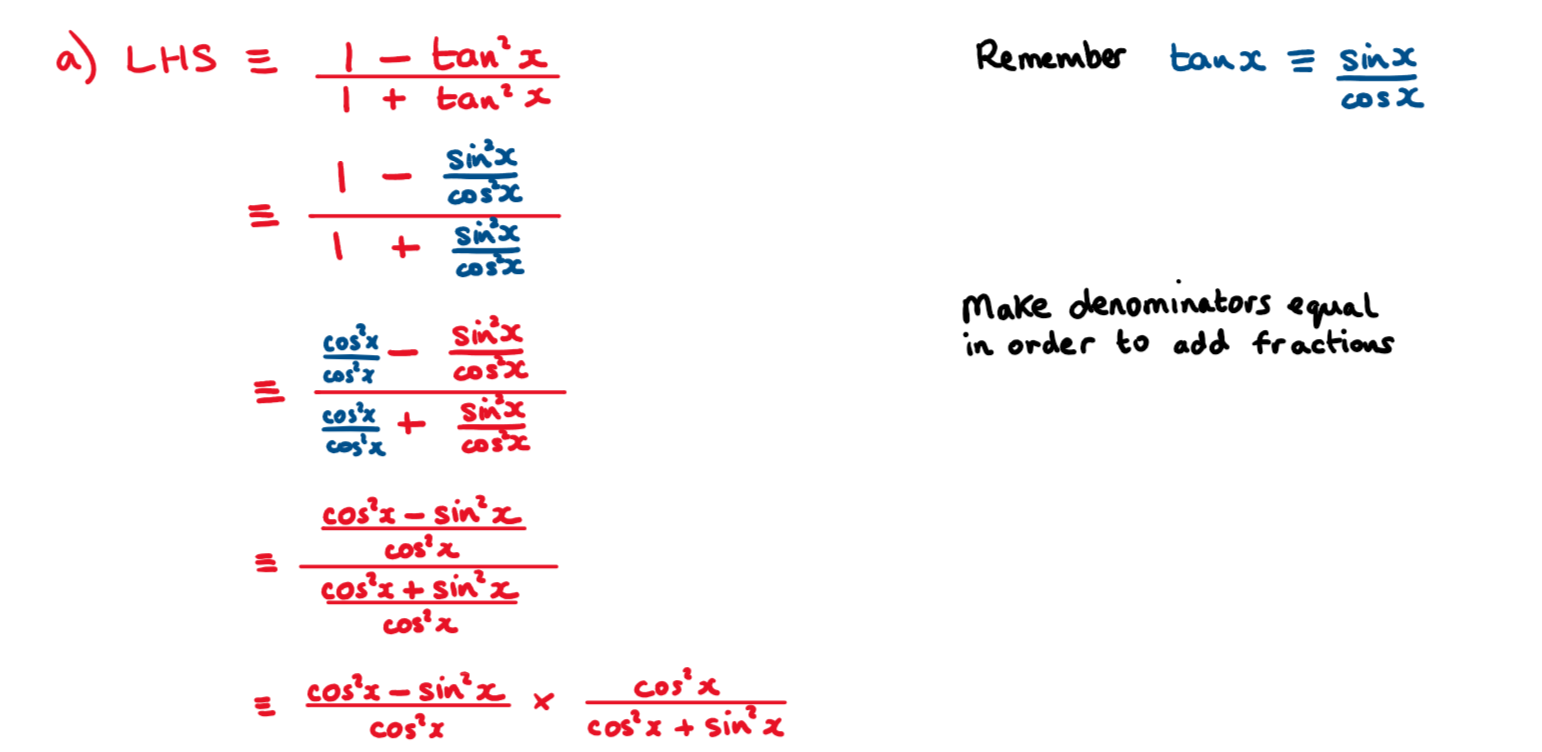 a) LHS ≡ (1 − tan²x)/(1 + tan²x)
Remember tan x ≡ sin x/cos x
≡ (1 − sin²x/cos²x)/(1 + sin²x/cos²x)
Make denominators equal
in order to add fractions
≡ (cos²x/cos²x − sin²x/cos²x)/(cos²x/cos²x + sin²x/cos²x)
≡ ((cos²x − sin²x)/cos²x)/((cos²x + sin²x)/cos²x)
≡ (cos²x − sin²x)/cos²x × cos²x/(cos²x + sin²x)